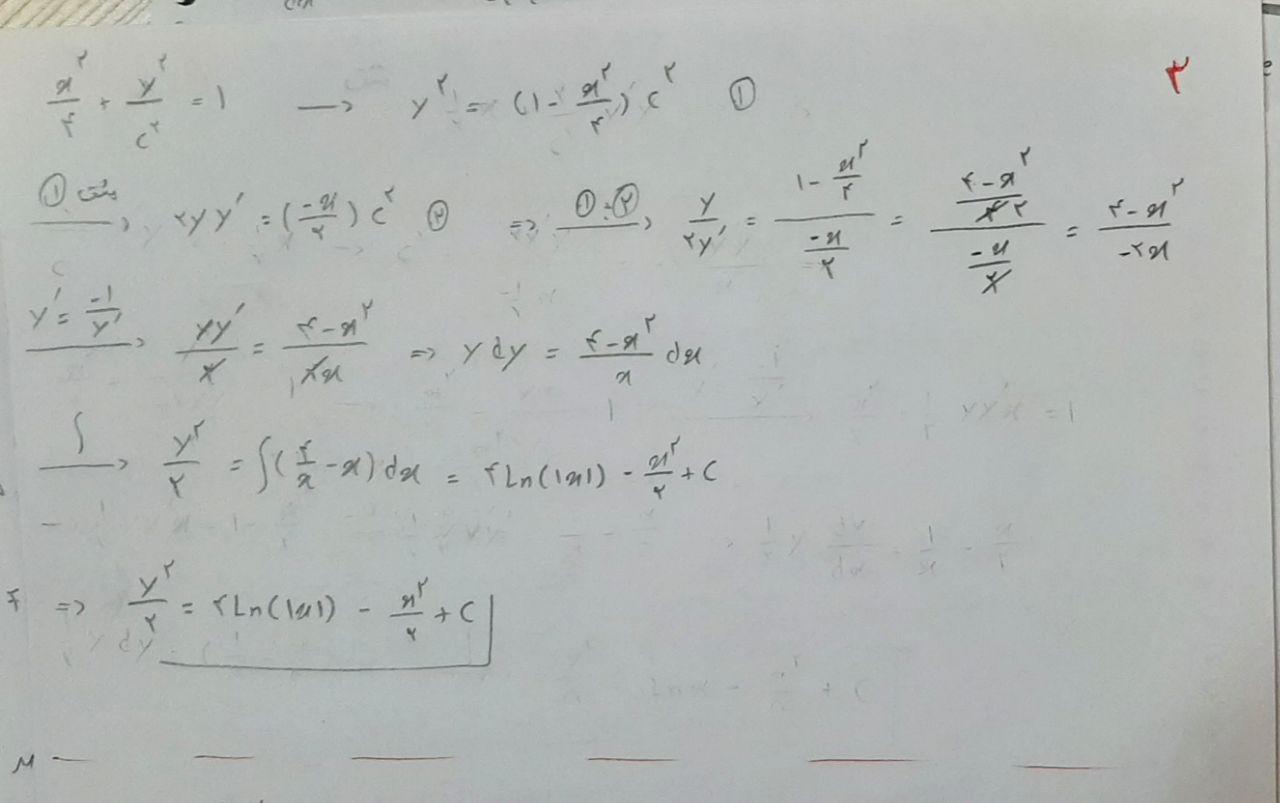 x^۲/۴ + y^۲/c^۲ = ۱ → y^۲ = (۱ - x^۲/۴) c^۲ ①
مشتق ① → ۲yy' = (-x/۲) c^۲ ② => ①÷② → y/۲y' = (۱ - x^۲/۴)/(-x/۲) = ((۴-x^۲)/۴۲)/(-x/۲) = (۴-x^۲)/(-۲x)
y' = -۱/y' → yy'/۲ = (۴-x^۲)/۲x => y dy = (۴-x^۲)/x dx
∫ → y^۲/۲ = ∫(۴/x - x) dx = ۴Ln(|x|) - x^۲/۲ + C
=> y^۲/۲ = ۴Ln(|x|) - x^۲/۲ + C